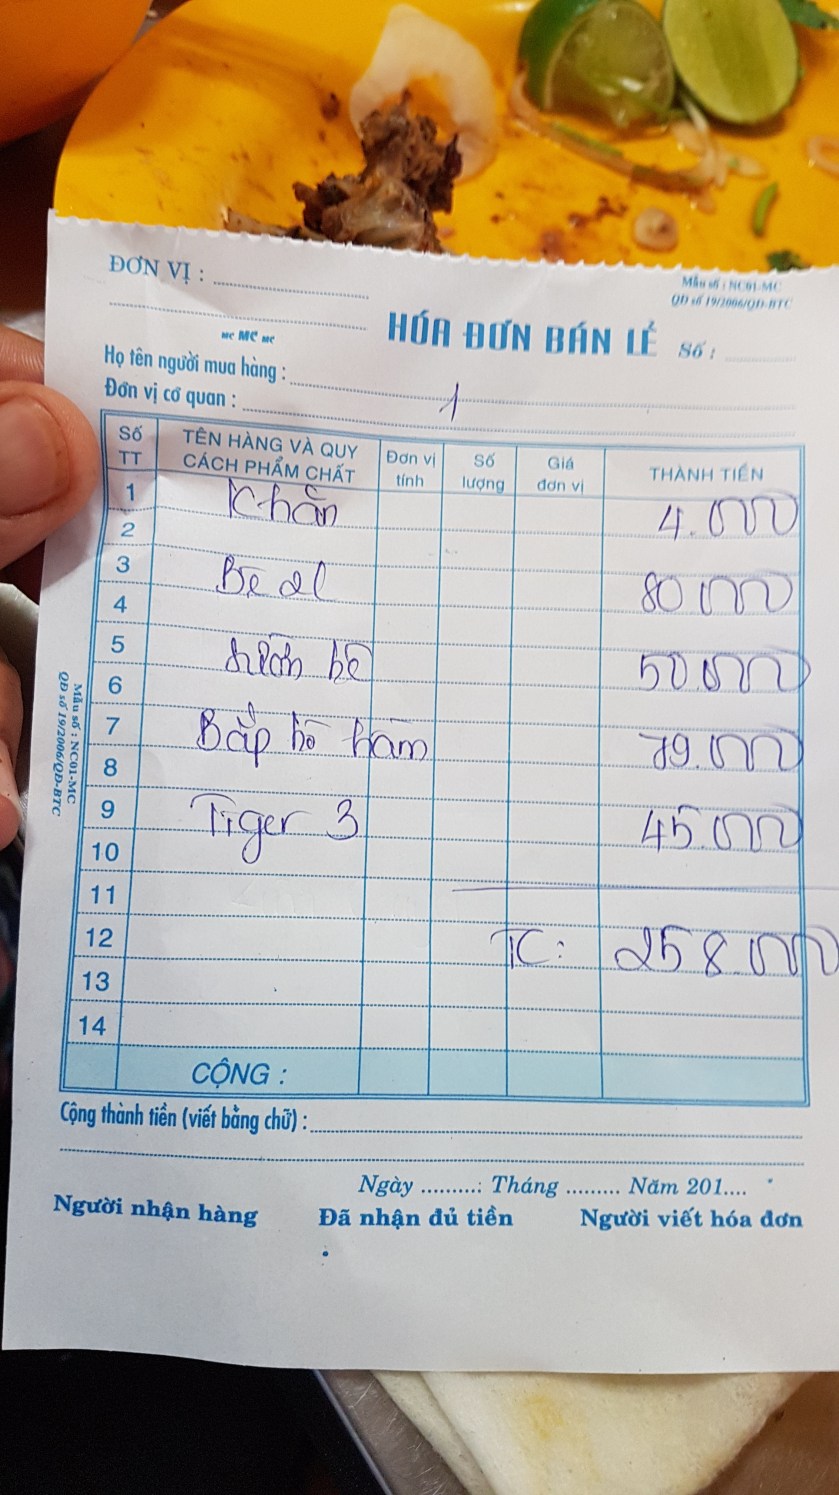 ĐƠN VỊ :
Mẫu số : NC01-MC
QĐ số 19/2006/QĐ-BTC
MC MC MC
HÓA ĐƠN BÁN LẺ Số :
Họ tên người mua hàng :
Đơn vị cơ quan : 1
Số TT TÊN HÀNG VÀ QUY CÁCH PHẨM CHẤT Đơn vị tính Số lượng Giá đơn vị THÀNH TIỀN
1 Khăn 4.000
2
3 80.000
4
5 50.000
6
7 Bắp bò hầm 79.000
8
9 Tiger 3 45.000
10
11
12 TC: 258.000
13
14
CỘNG :
Cộng thành tiền (viết bằng chữ) :
Ngày .........: Tháng ......... Năm 201....
Người nhận hàng Đã nhận đủ tiền Người viết hóa đơn
Mẫu số : NC01-MC
QĐ số 19/2006/QĐ-BTC